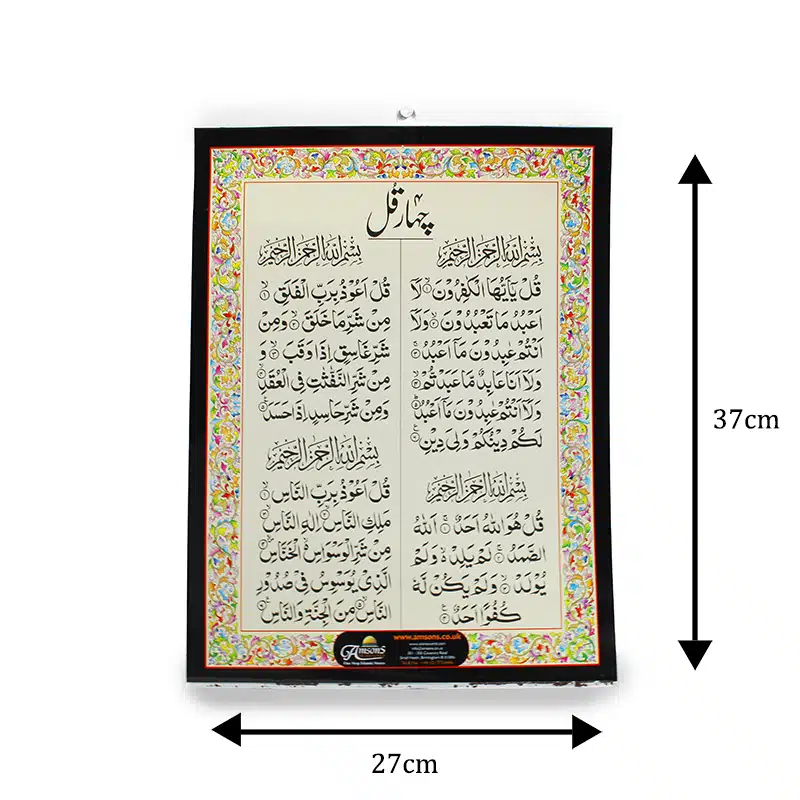 چہار قُل
بِسْمِ اللهِ الرَّحْمٰنِ الرَّحِيْمِ
قُلْ يٰۤاَيُّهَا الْكٰفِرُوْنَ ۙ‏﴿۱﴾ لَاۤ
اَعْبُدُ مَا تَعْبُدُوْنَ ۙ‏﴿۲﴾ وَلَاۤ
اَنْتُمْ عٰبِدُوْنَ مَاۤ اَعْبُدُ ۚ‏﴿۳﴾
وَلَاۤ اَنَا عَابِدٌ مَّا عَبَدْتُّمْ ۙ‏﴿۴﴾
وَلَاۤ اَنْتُمْ عٰبِدُوْنَ مَاۤ اَعْبُدُ ؕ‏﴿۵﴾
لَكُمْ دِيْنُكُمْ وَلِىَ دِيْنِ ‏﴿۶﴾
بِسْمِ اللهِ الرَّحْمٰنِ الرَّحِيْمِ
قُلْ هُوَ اللهُ اَحَدٌ ۚ‏﴿۱﴾ اَللهُ
الصَّمَدُ ۚ‏﴿۲﴾ لَمْ يَلِدْ ۙ وَلَمْ
يُوْلَدْ ۙ‏﴿۳﴾ وَلَمْ يَكُنْ لَّهٗ
كُفُوًا اَحَدٌ ‏﴿۴﴾
بِسْمِ اللهِ الرَّحْمٰنِ الرَّحِيْمِ
قُلْ اَعُوْذُ بِرَبِّ الْفَلَقِ ۙ‏﴿۱﴾
مِنْ شَرِّ مَا خَلَقَ ۙ‏﴿۲﴾ وَمِنْ
شَرِّ غَاسِقٍ اِذَا وَقَبَ ۙ‏﴿۳﴾ وَ
مِنْ شَرِّ النَّفّٰثٰتِ فِى الْعُقَدِ ۙ‏﴿۴﴾
وَمِنْ شَرِّ حَاسِدٍ اِذَا حَسَدَ ‏﴿۵﴾
بِسْمِ اللهِ الرَّحْمٰنِ الرَّحِيْمِ
قُلْ اَعُوْذُ بِرَبِّ النَّاسِ ۙ‏﴿۱﴾
مَلِكِ النَّاسِ ۙ‏﴿۲﴾ اِلٰهِ النَّاسِ ۙ‏﴿۳﴾
مِنْ شَرِّ الْوَسْوَاسِ ۙ الْخَنَّاسِ ۙ‏﴿۴﴾
الَّذِىْ يُوَسْوِسُ فِىْ صُدُوْرِ
النَّاسِ ۙ‏﴿۵﴾ مِنَ الْجِنَّةِ وَالنَّاسِ ‏﴿۶﴾
Amsons
One Stop Islamic Store
www.amsons.co.uk
37cm
27cm